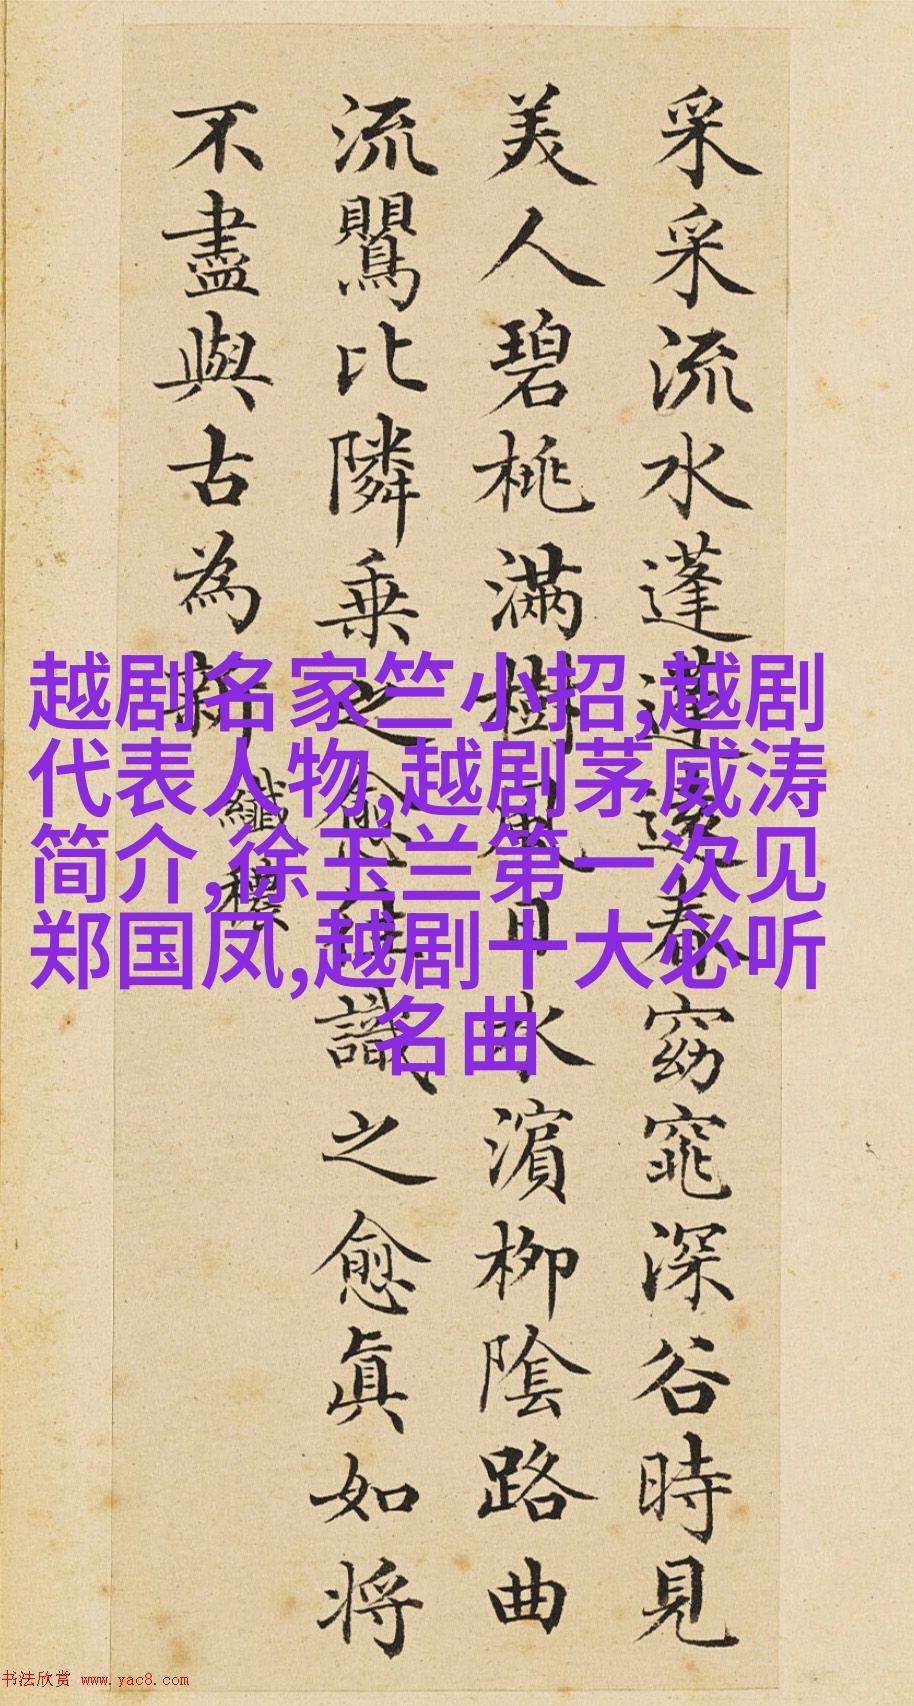 采采流水蓬蓬遠春窈窕深谷時見
美人碧桃滿樹風日水濵柳陰路曲
流鸎比隣乗之愈徃識之愈眞如将
不盡與古為新
纖穠
越剧名家竺小招,越剧
代表人物,越剧茅威涛
简介,徐玉兰第一次见
郑国凤,越剧十大必听
名曲
书法欣赏 www.yac8.com